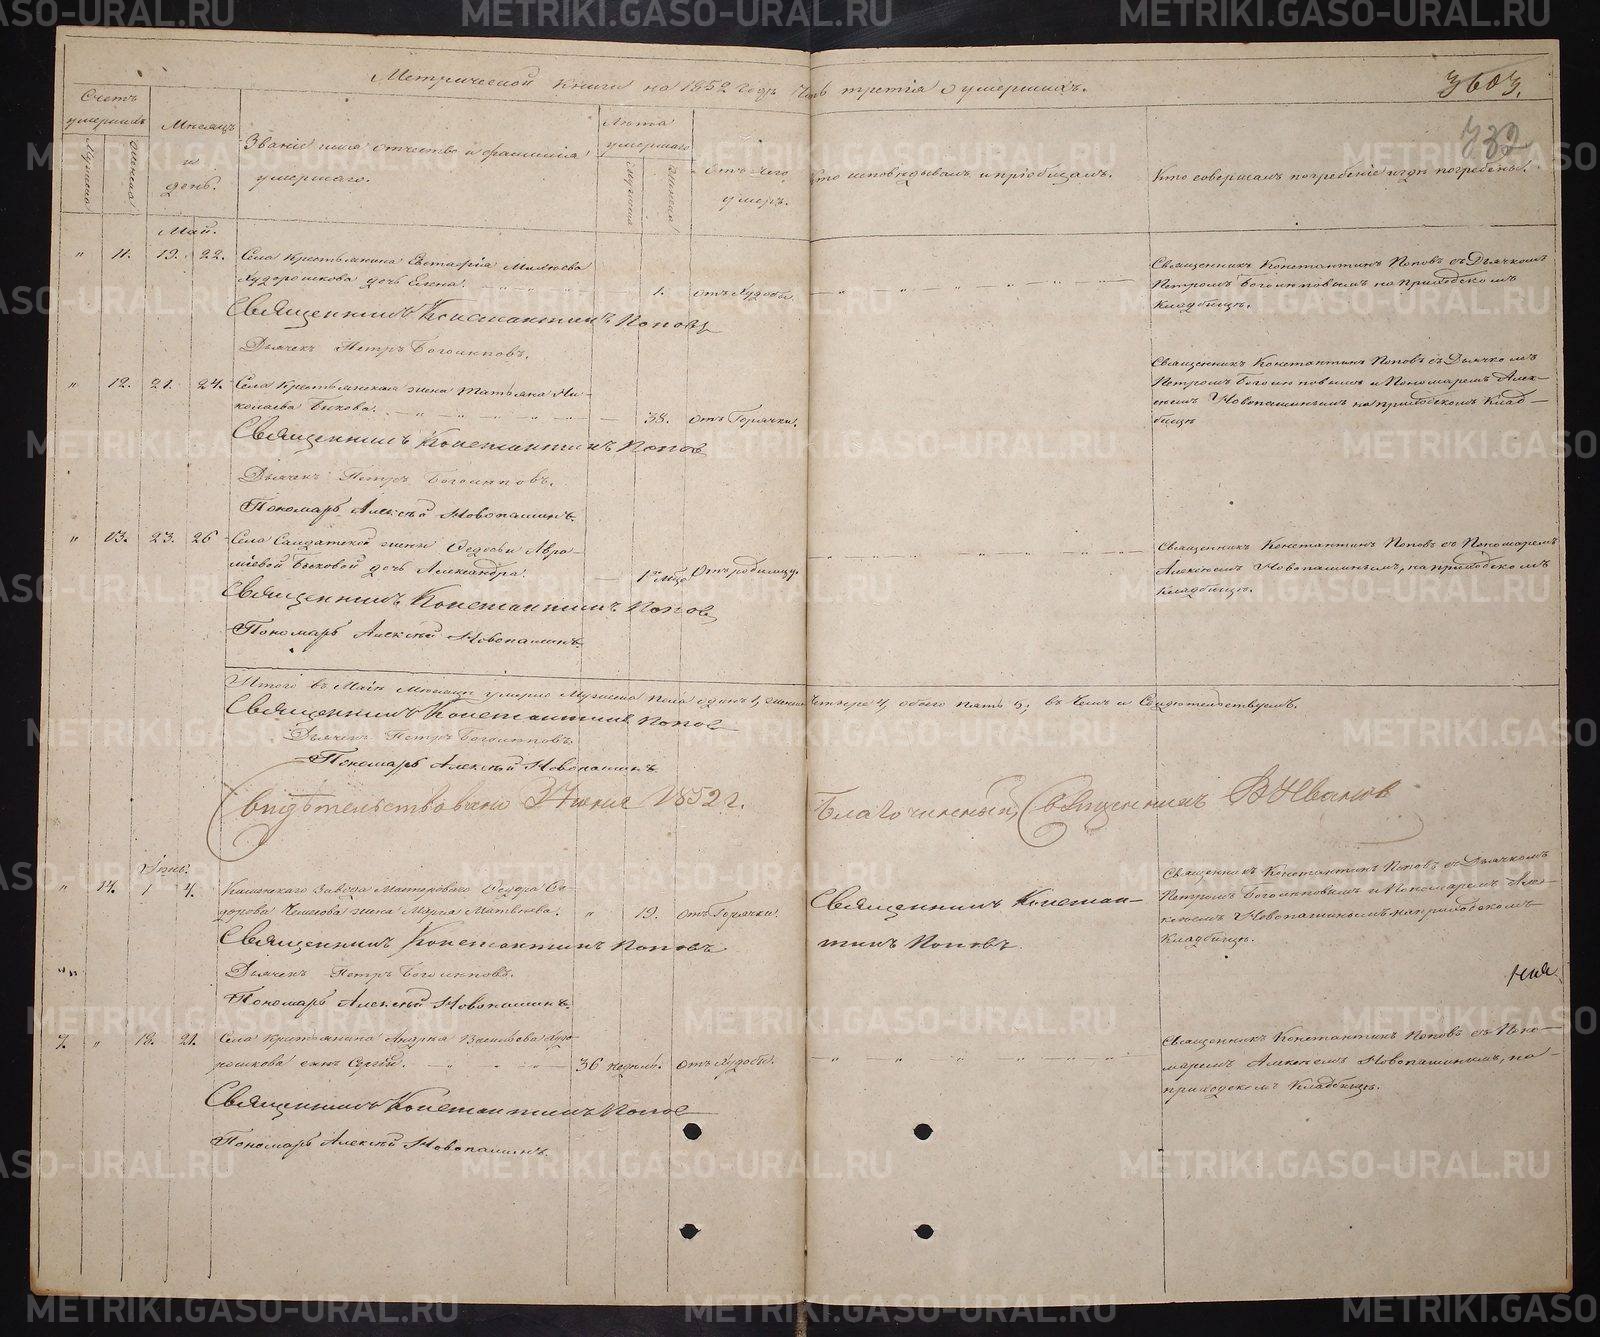 Метрической книги на 1852 годъ Часть третія о умершихъ.
3603.
732
Счетъ умершихъ
Мужеска
Женска
Мѣсяцъ и день.
Званіе имя отчество и фамилія умершаго.
Лѣта умершаго
Мужеска
Женска
Отъ чего умеръ.
Кто исповѣдывалъ и пріобщалъ.
Кто совершалъ погребеніе и гдѣ погребены.
Май.
" 11. 19. 22. Села Крестьянина Евстафія
Худорошкова дочь Елена. 1. отъ Худобы.
Священникъ Константинъ Поповъ съ Дьячкомъ
Петромъ Боголѣповымъ на приходскомъ
Кладбищѣ.
Священникъ Константинъ Поповъ
Дьячекъ Петръ Боголѣповъ.
" 12. 21. 24. Села Крестьянская жена Татьяна Ни-
колаева Быкова. 38. отъ Горячки.
Священникъ Константинъ Поповъ съ Дьячкомъ
Петромъ Боголѣповымъ и Пономаремъ Алек-
сѣемъ Новопашинымъ на приходскомъ Клад-
бищѣ
Священникъ Константинъ Попов
Дьячекъ Петръ Боголѣповъ.
Пономарь Алексѣй Новопашинъ.
" 13. 23. 26 Села Солдатской жены Федосьи Авра-
міевой Быковой дочь Александра. 1 мѣс. Отъ родимцу.
Священникъ Константинъ Поповъ съ Пономаремъ
Алексѣемъ Новопашинымъ, на приходскомъ
Кладбищѣ.
Священникъ Константинъ Попов
Пономарь Алексѣй Новопашинъ.
Итого въ Маѣ Мѣсяцѣ умерло Мужеска пола одинъ 1, женска четыре 4, обоего пять 5; въ чемъ и Свидѣтельствуемъ.
Священникъ Константинъ Попов
Дьячекъ Петръ Боголѣповъ.
Пономарь Алексѣй Новопашинъ.
Свидѣтельствовано Іюня 1852 г. Благочинный, Священникъ В Ивановъ
Іюнь.
" 14. 1 4. Каменскаго Завода Мастероваго Федора
жена Марья Матвѣева. " 19. отъ Горячки.
Священникъ Констан-
тинъ Поповъ.
Священникъ Константинъ Поповъ съ Дьячкомъ
Петромъ Боголѣповымъ и Пономаремъ Але-
ксѣемъ Новопашинымъ на приходскомъ
Кладбищѣ.
Священникъ Константинъ Поповъ
Дьячекъ Петръ Боголѣповъ.
Пономарь Алексѣй Новопашинъ.
7. " 18. 21. Села Крестьянина Андрея Васильева Худо-
рошкова сынъ Сергѣй. 36 недѣль. отъ Худобы.
Священникъ Константинъ Поповъ съ Поно-
маремъ Алексѣемъ Новопашинымъ, на
приходскомъ Кладбищѣ.
Священникъ Константинъ Попов
Пономарь Алексѣй Новопашинъ.
METRIKI.GASO-URAL.RU